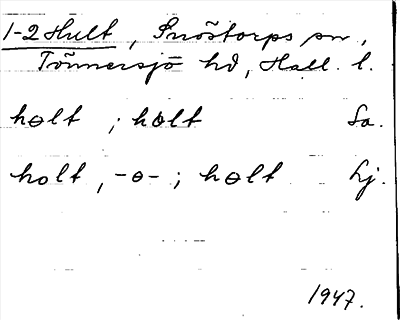 1-2 Hult, Snöstorps sn,
Tönnersjö hd, Hall. l.
hɵlt ; hɵlt Sa.
holt, -ɵ- ; hɵlt Lj.
1947.